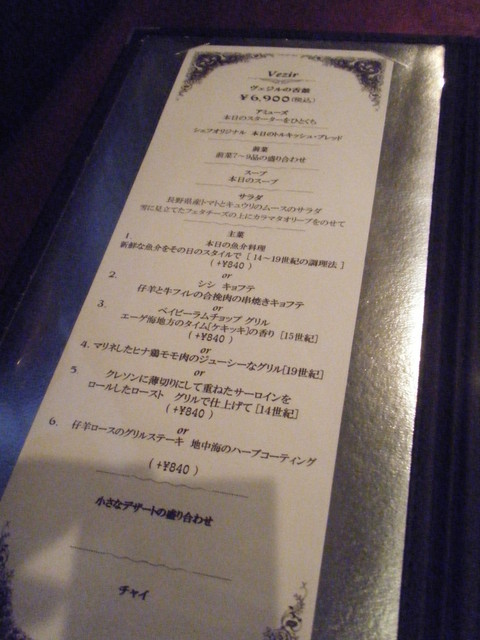 Vezir
ヴェジルの舌鼓
¥6,900(税込)
アミューズ
本日のスターターをひとくち
シェフオリジナル 本日のトルキッシュ・ブレッド
前菜
前菜7~9品の盛り合わせ
スープ
本日のスープ
サラダ
長野県産トマトとキュウリのムースのサラダ
雪に見立てたフェタチーズの上にカラマタオリーブをのせて
主菜
1. 本日の魚介料理
新鮮な魚介をその日のスタイルで [ 14~19世紀の調理法 ]
(+¥840)
or
2. シシ キョフテ
仔羊と牛フィレの合挽肉の串焼きキョフテ
or
3. ベイビーラムチョップ グリル
エーゲ海地方のタイム[ケキッキ]の香り [15世紀]
(+¥840)
or
4. マリネしたヒナ鶏モモ肉のジューシーなグリル[19世紀]
or
5. クレソンに薄切りにして重ねたサーロインを
ロールしたロースト グリルで仕上げて [14世紀]
(+¥840)
or
6. 仔羊ロースのグリルステーキ 地中海のハーブコーティング
(+¥840)
小さなデザートの盛り合わせ
チャイ